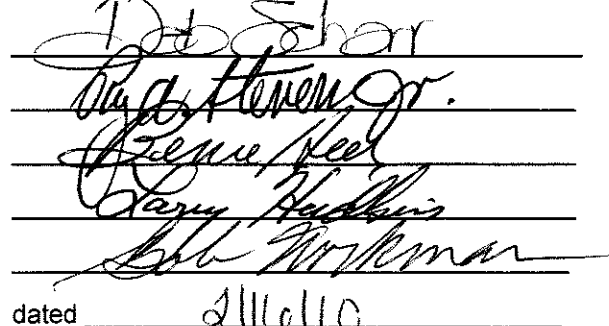 Deb Scharr
Roy A. Steven Jr.
Bernie Heer
Larry Hudkins
Bob Workman
dated 2/16/10